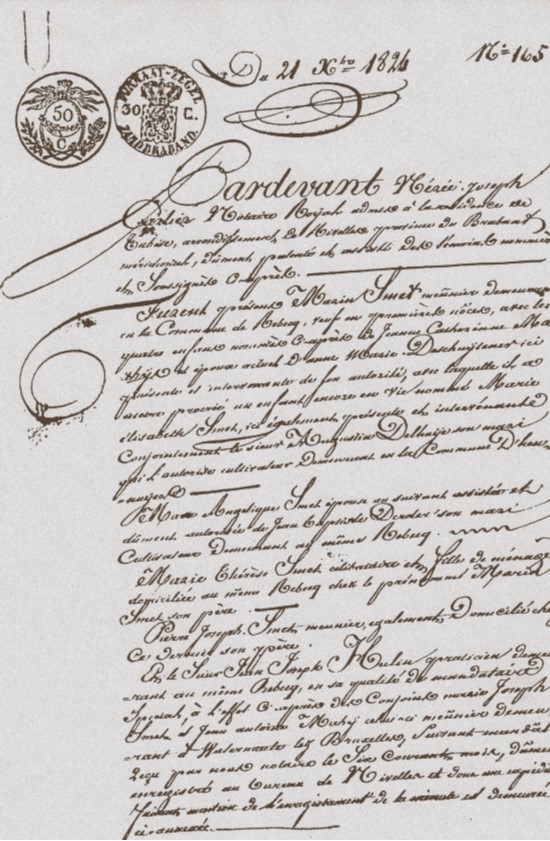 Du 21 Xbre 1824
Nº 165
50
C.
KWAAT-ZEGEL
30 C.
ZUIDBRABAND.
Pardevant Nérée Joseph
Notaire Royal à la résidence de
Tubise, arrondissement de Nivelles province du Brabant
méridional, dûment patenté et assisté des témoins nommés
et Soussignés Ci-après.
Furent présents Marin Smet meûnier demeurant
en la Commune de Rebecq, veuf en premières nôces, avec les
quatre enfans nommés Ci-après de Jeanne Catherinne
et époux actuel d'anne Marie ici
présente et intervenante de son autorité, avec laquelle il a
encore procréé un enfant encore en vie nommé Marie
élisabeth Smet, ici également présente et intervenante
Conjointement le sieur Augustin Delhaije son mari
qui l'autorise cultivateur Demeurant en la Commune D'hen-
-nuijeres
Marie Angelique Smet épouse au suivant assistée et
dûment autorisée de Jean Baptiste son mari
Cultivateur Demeurant au même Rebecq.
Marie Thérèse Smet célibataire et fille de ménage
domiciliée au même Rebecq chez le prénommé Marin
Smet son père.
Pierre Joseph Smet meunier, egalement Domicilié chez
Ce dernier son père.
Et le Sieur Jean Joseph Hulin praticien demeu-
-rant au même Rebecq, en sa qualité de mandataire
Special, à l'effet Ci-après des Conjoint marie Joseph
Smet et Jean antoine Mahij aussi meûnier demeu-
-rant à lez Bruxelles, suivant mandat
reçu par nous notaire le Six Courant mois, dûment
enregistré au bureau de Nivelles et dont une expédition
faisant mention de l'enregistrement de la minute est demeurée
ci-annexée.